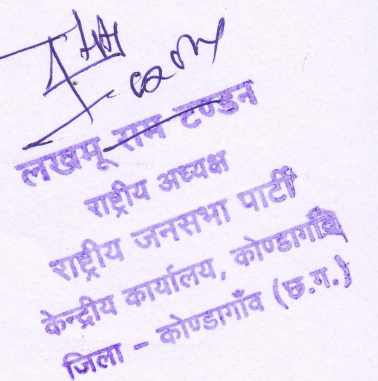 लखमू राम टण्डन
राष्ट्रीय अध्यक्ष
राष्ट्रीय जनसभा पार्टी
केन्द्रीय कार्यालय, कोण्डागाँव
जिला - कोण्डागाँव (छ.ग.)